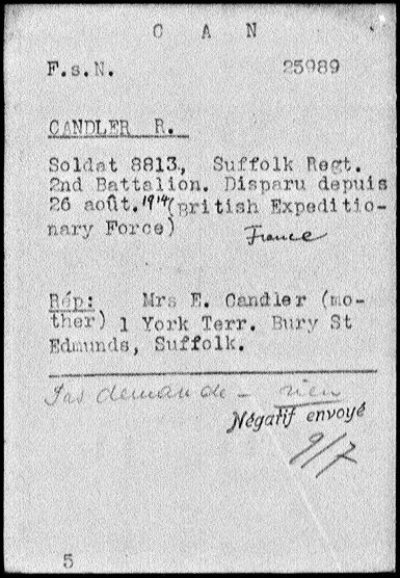 C A N
F.s.N. 25989
CANDLER R.
Soldat 8813, Suffolk Regt.
2nd Battalion. Disparu depuis
26 août. 1914 (British Expeditio-
nary Force) France
Rép: Mrs E. Candler (mo-
ther) 1 York Terr. Bury St
Edmunds, Suffolk.
Pas demande - rien
Négatif envoyé
9/7
5